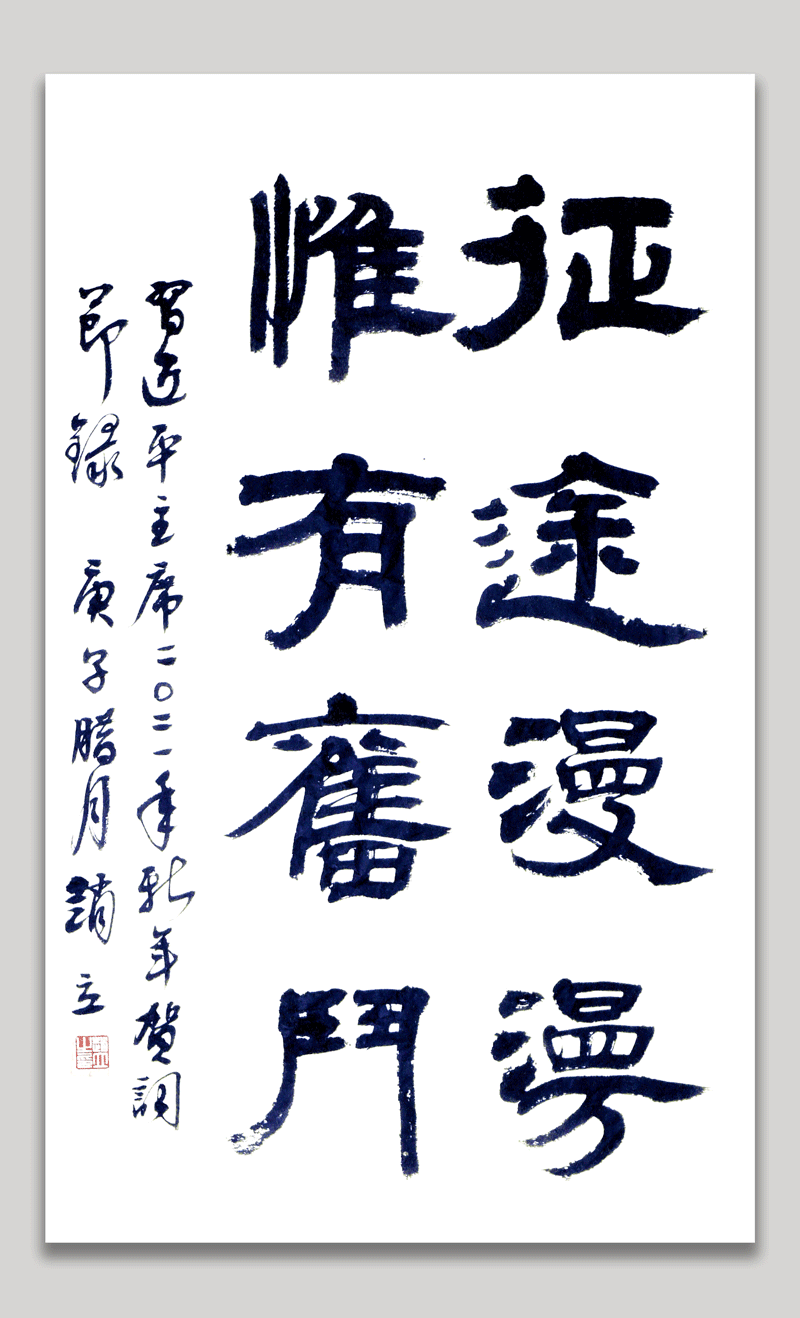 征途漫漫
惟有奮鬥
習近平主席二〇二一年新年賀詞
節録 庚子腊月 趙立